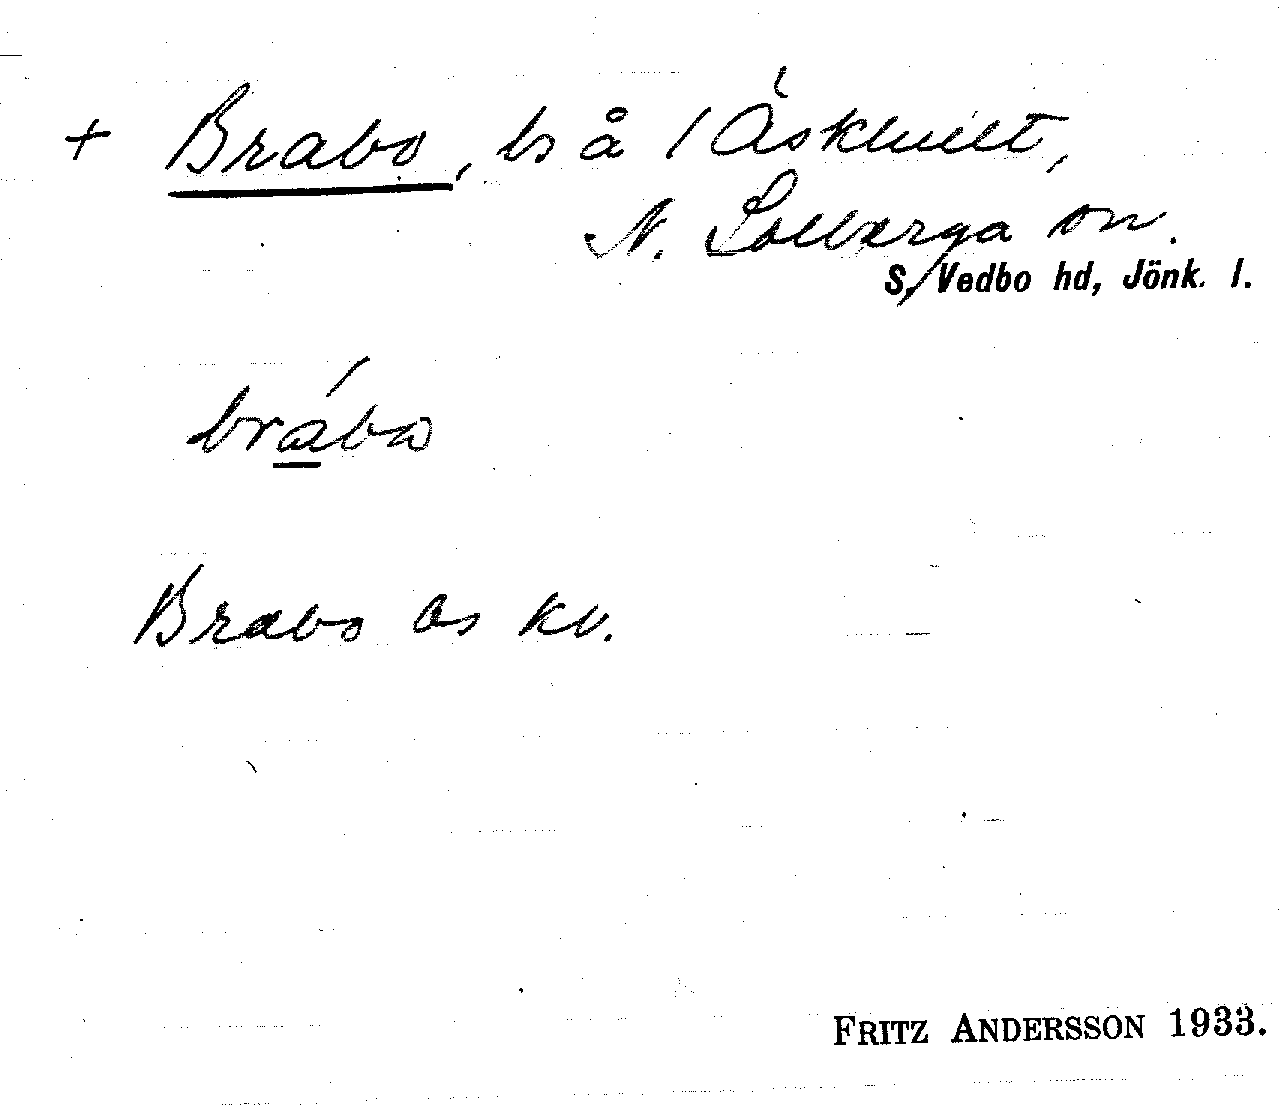 + Brabo, ls å 1 Äskhult,
N. Solberga sn.
S. Vedbo hd, Jönk. l.
brábω
Brabo os kv.
FRITZ ANDERSSON 1933.